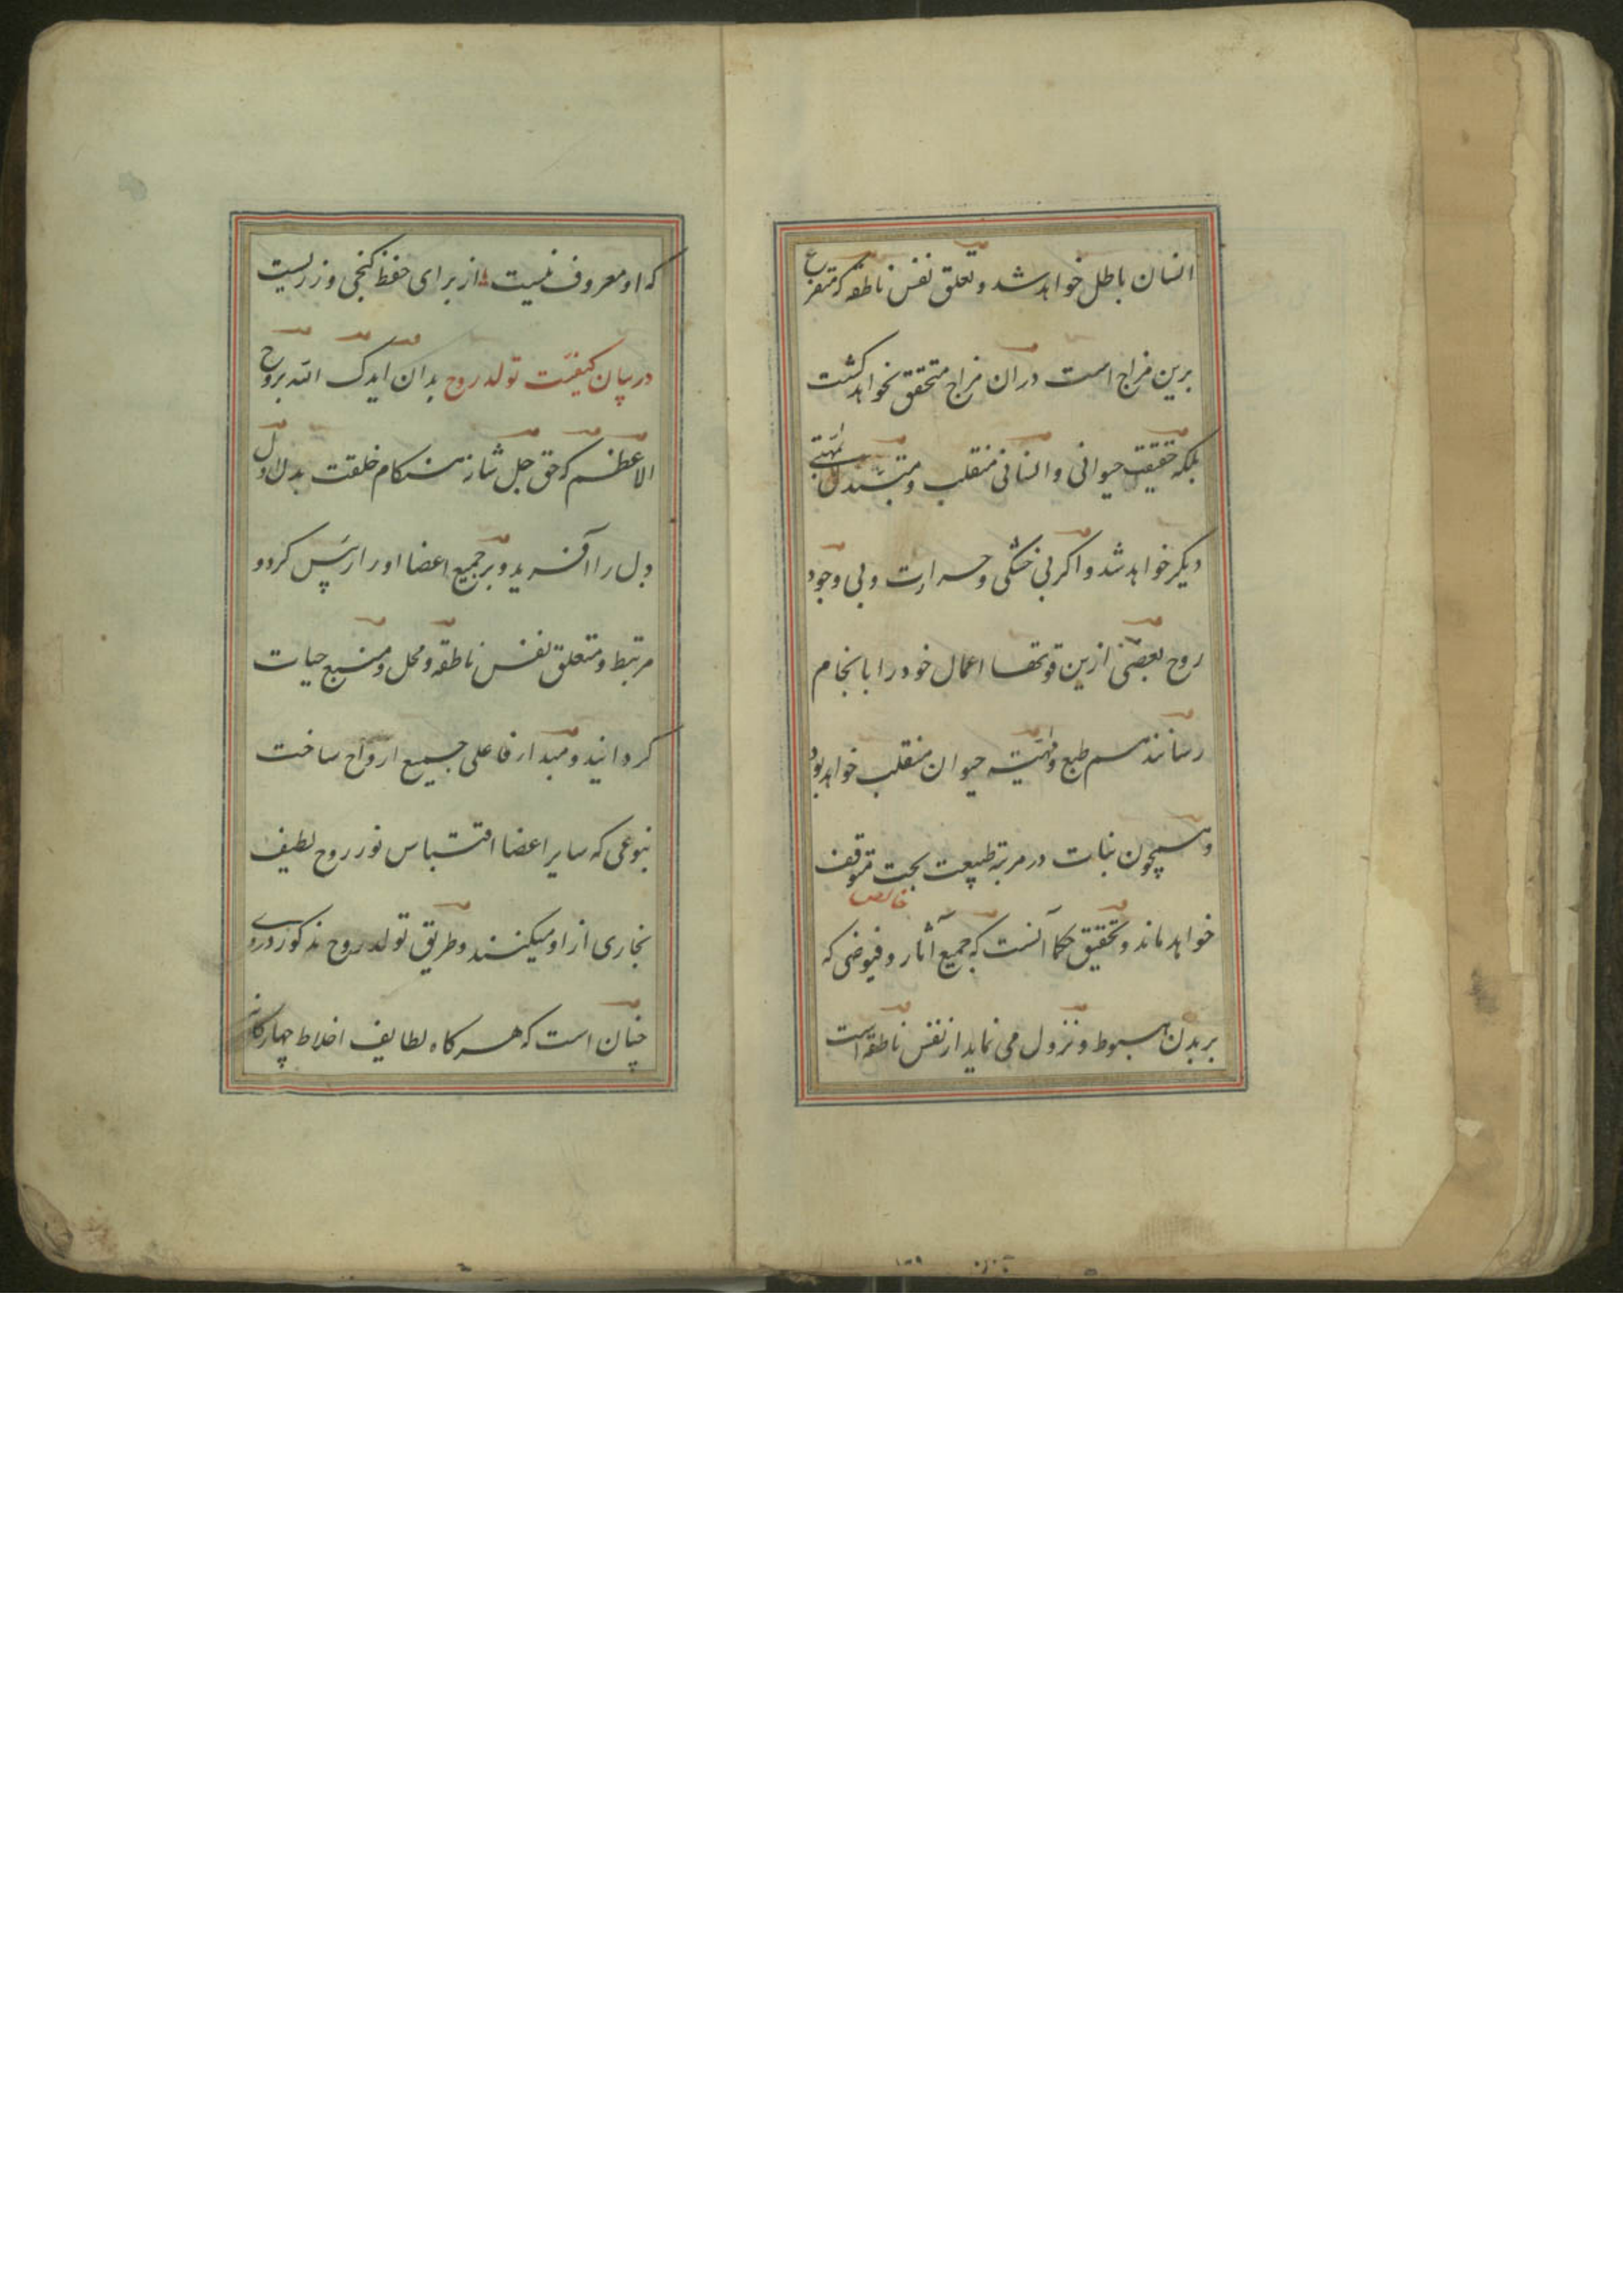 انسان باطل خواهد شد و تعلق نفس ناطقه که متفرع
برین مزاج است در آن مزاج متحقق نخواهد کشت
بلکه حقیقت حیوانی و انسانی منقلب و متبدل بمهیتی
دیکر خواهد شد و اکر بی خشکی و حرارت و بی وجود
روح بعضی ازین قوتها اعمال خود را بانجام
رسانند هم طبع و مهیّة حیوان منقلب خواهد بود
و همچون نبات در مرتبه طبیعت بحت متوقف
خالص
خواهد ماند و تحقیق حکما آنست که جمیع آثار و فیوضی که
بر بدن هبوط و نزول می نماید از نفس ناطقه است
که او معروف نیست از برای حفظ کنجی و زریست
در بیان کیفیّت تولد روح بدان ایدک الله بروح
الاعظم که حق جل شانه هنکام خلقت بدن اول
دل را آفرید و بر جمیع اعضا او را رئیس کرد و
مرتبط و متعلق نفس ناطقه و محل و منبع حیات
کردانید و مبداء فاعلی جمیع ارواح ساخت
بنوعی که سایر اعضا اقتباس نور روح لطیف
بخاری از او میکنند و طریق تولد روح مذکور در وی
چنان است که هرکاه لطایف اخلاط چهارکانه